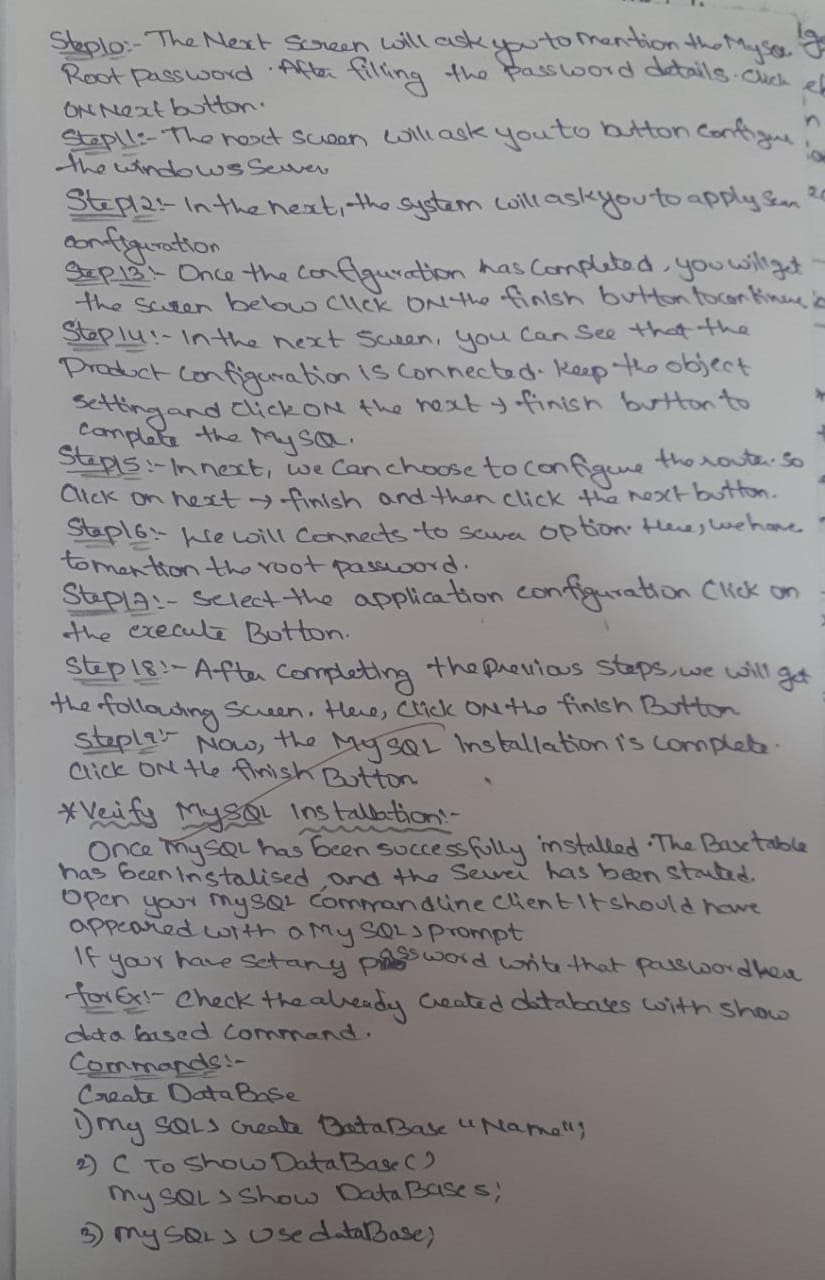 Step10:- The Next Screen will ask you to mention the MySQL
Root password. After filling the password details. Click
ON Next button.
Step11:- The next screen will ask you to button configure
the windows Server
Step12:- In the next, the system will ask you to apply
configuration
Step13:- Once the configuration has completed, you will get
the screen below Click ON the finish button to continue
Step14:- In the next screen, you can see that the
Product configuration is connected. Keep the object
setting and click ON the next → finish button to
complete the MySQL.
Step15:- In next, we can choose to configure the router. So
Click on next → finish and then click the next button.
Step16:- We will connects to server option. Here, we have
to mention the root password.
Step17:- Select the application configuration Click on
the execute Button.
Step 18:- After completing the previous steps, we will get
the following screen. Here, Click ON the finish Button
Step19:- Now, the MySQL Installation is complete.
Click ON the finish Button
*Verify MySQL Installation:-
Once MySQL has been successfully installed. The Base table
has been Instalised, and the Server has been started.
Open your MySQL Command line Client It should have
appeared with a MySQL> prompt
If your have set any password write that password here
for Ex:- Check the already created databases with show
data based command.
Commands:-
Create DataBase
1) My SQL> Create DataBase "Name";
2) ( To show DataBase ( )
My SQL > Show DataBases;
3) My SQL > Use dataBase;